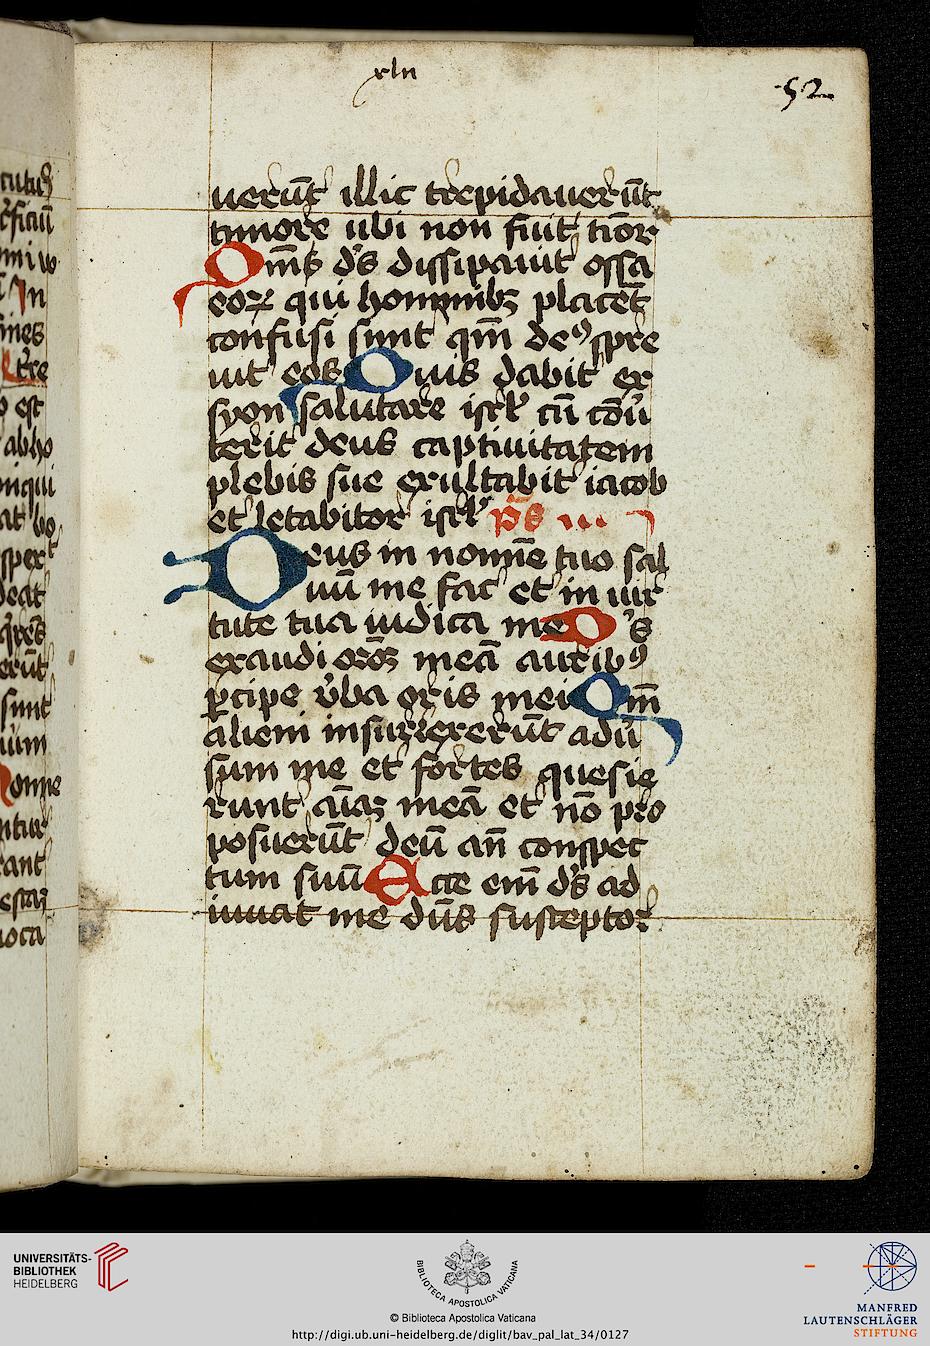 xln
52
uerūt illic trepidauerūt
timore ubi non fuit tior
Qm̄ ds dissipauit ossa
eoꝝ qui hominibꝫ placēt
confusi sunt qm̄ deꝰ spre
uit eos Quis dabit ex
syon salutare isrl cū cōu̅
terit deus captiuitatem
plebis sue exultabit iacob
et letabitor isrl ps
Deus in nomīe tuo sal
uū me fac et in uir
tute tua iudica me Ds
exaudi orōꝫ meā auribꝰ
ꝑcipe u̅ba oris mei Qm̄
alieni insurrexerūt adu̅
sum me et fortes quesie
runt aīaꝫ meā et nō pro
posuerūt deū an̄ conspec
tum suū Ecce em̄ ds ad
iuuat me dūs susceptor
UNIVERSITÄTS-
BIBLIOTHEK
HEIDELBERG
BIBLIOTECA APOSTOLICA VATICANA
© Biblioteca Apostolica Vaticana
http://digi.ub.uni-heidelberg.de/diglit/bav_pal_lat_34/0127
MANFRED
LAUTENSCHLÄGER
STIFTUNG